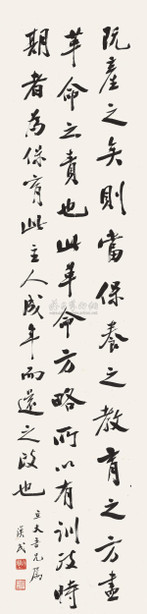 既產之矣則當保養之教育之方盡
革命之責也此革命方略所以有訓政時
期者為保育此主人成年而還之政也
立夫吾兄屬
漢民